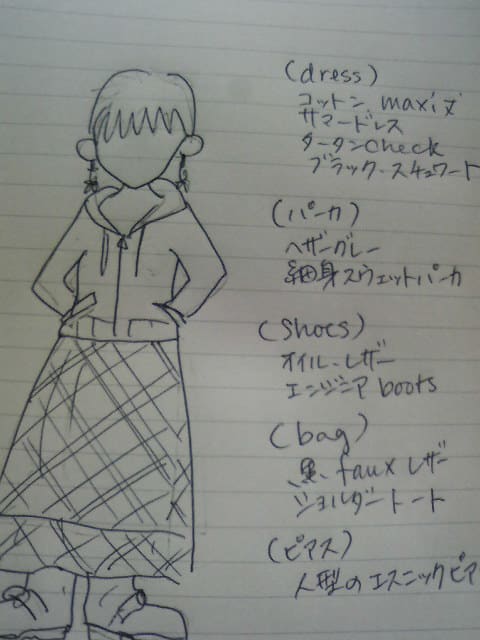 (dress)
コットン maxi丈
サマードレス
タータンcheck
ブラックスチュワート
(パーカ)
ヘザーグレー
細身スウェットパーカ
(shoes)
オイルレザー
エンジニア boots
(bag)
黒、fauxレザー
ショルダートート
(ピアス)
人型のエスニックピア